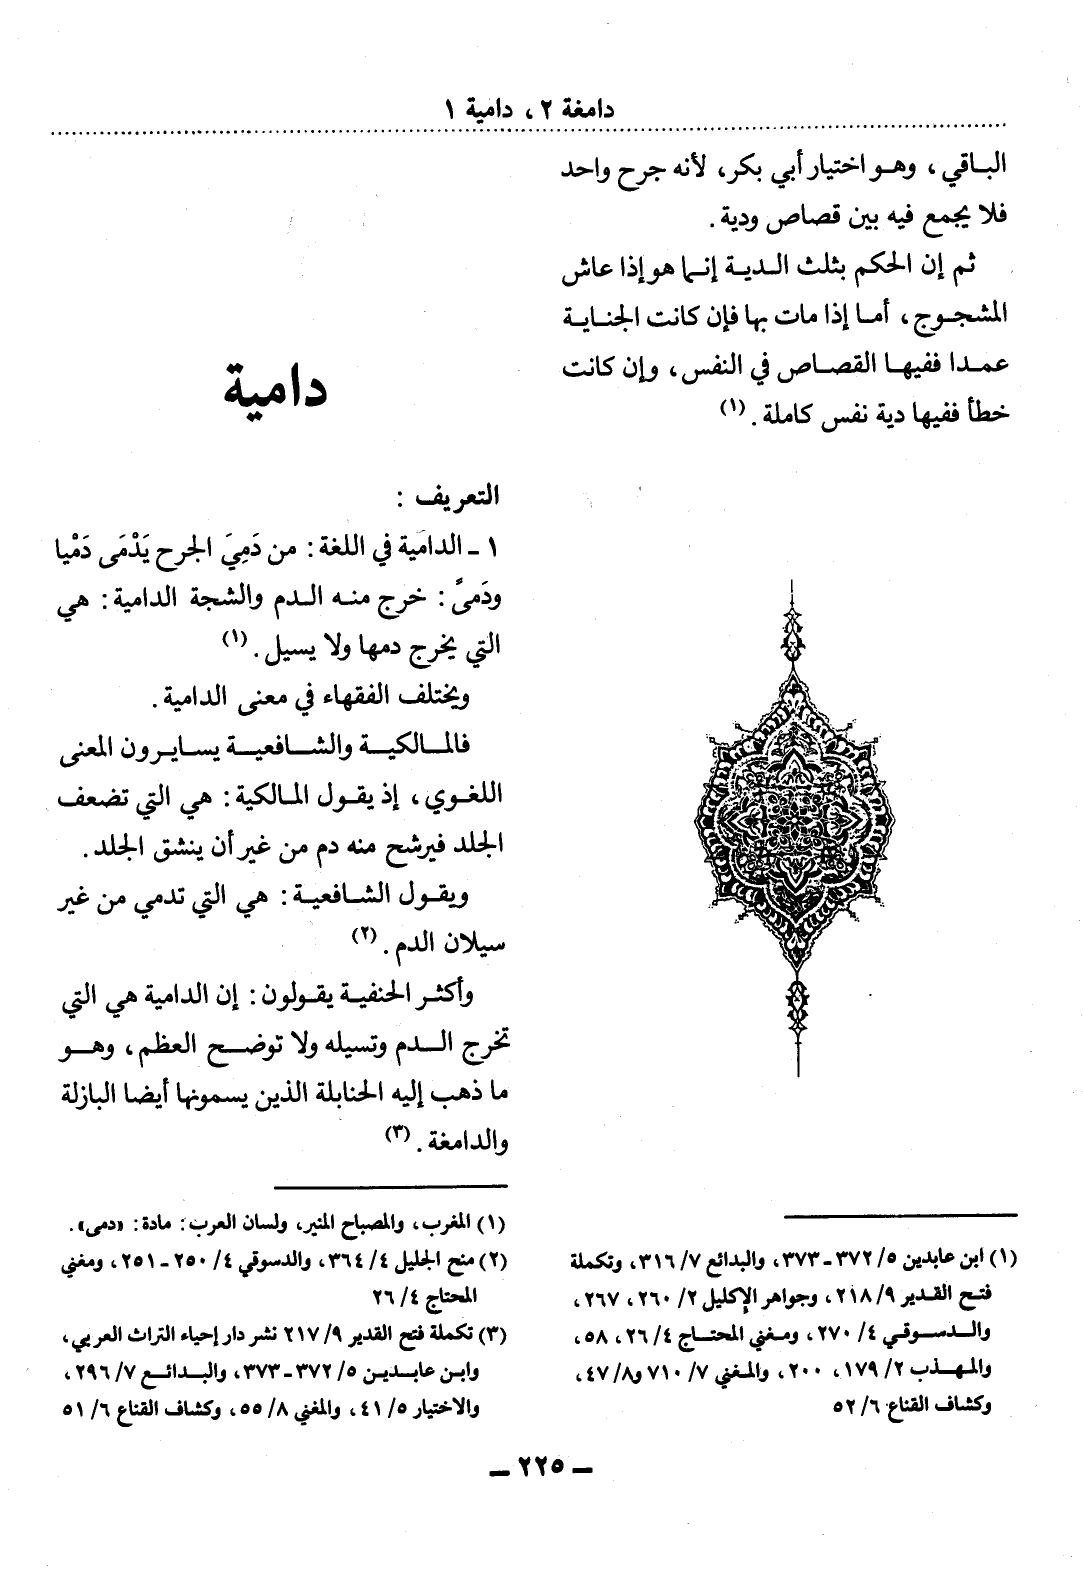 دامغة ٢ ، دامية ١
الباقي ، وهو اختيار أبي بكر، لأنه جرح واحد
فلا يجمع فيه بين قصاص ودية .
ثم إن الحكم بثلث الدية إنما هو إذا عاش
المشجوج، أما إذا مات بها فإن كانت الجناية
عمدا ففيها القصاص في النفس، وإن كانت
خطأ ففيها دية نفس كاملة . (١)
(١) ابن عابدين ٥/ ٣٧٢ـ٣٧٣، والبدائع ٧/ ٣١٦، وتكملة
فتح القدير ٩/ ٢١٨، وجواهر الإكليل ٢/ ٢٦٠، ٢٦٧،
والدسوقي ٤/ ٢٧٠، ومغني المحتاج ٤/ ٢٦، ٥٨،
والمهذب ٢/ ١٧٩، ٢٠٠، والمغني ٧/ ٧١٠ و٨/ ٤٧،
وكشاف القناع ٦/ ٥٢
دامية
التعريف :
١ ـ الدامية في اللغة: من دَمِيَ الجرح يَدْمَى دَمْيا
ودَمىً: خرج منه الدم والشجة الدامية: هي
التي يخرج دمها ولا يسيل . (١)
ويختلف الفقهاء في معنى الدامية .
فالمالكية والشافعية يسايرون المعنى
اللغوي، إذ يقول المالكية: هي التي تضعف
الجلد فيرشح منه دم من غير أن ينشق الجلد.
ويقول الشافعية: هي التي تدمي من غير
سيلان الدم . (٢)
وأكثر الحنفية يقولون: إن الدامية هي التي
تخرج الدم وتسيله ولا توضح العظم، وهو
ما ذهب إليه الحنابلة الذين يسمونها أيضا البازلة
والدامغة . (٣)
(١) المغرب، والمصباح المنير، ولسان العرب: مادة: «دمى».
(٢) منح الجليل ٤/ ٣٦٤، والدسوقي ٤/ ٢٥٠ـ٢٥١، ومغني
المحتاج ٤/ ٢٦
(٣) تكملة فتح القدير ٩/ ٢١٧ نشر دار إحياء التراث العربي،
وابن عابدين ٥/ ٣٧٢ـ٣٧٣، والبدائع ٧/ ٢٩٦،
والاختيار ٥/ ٤١، والمغني ٨/ ٥٥، وكشاف القناع ٦/ ٥١
ـ ٢٢٥ ـ